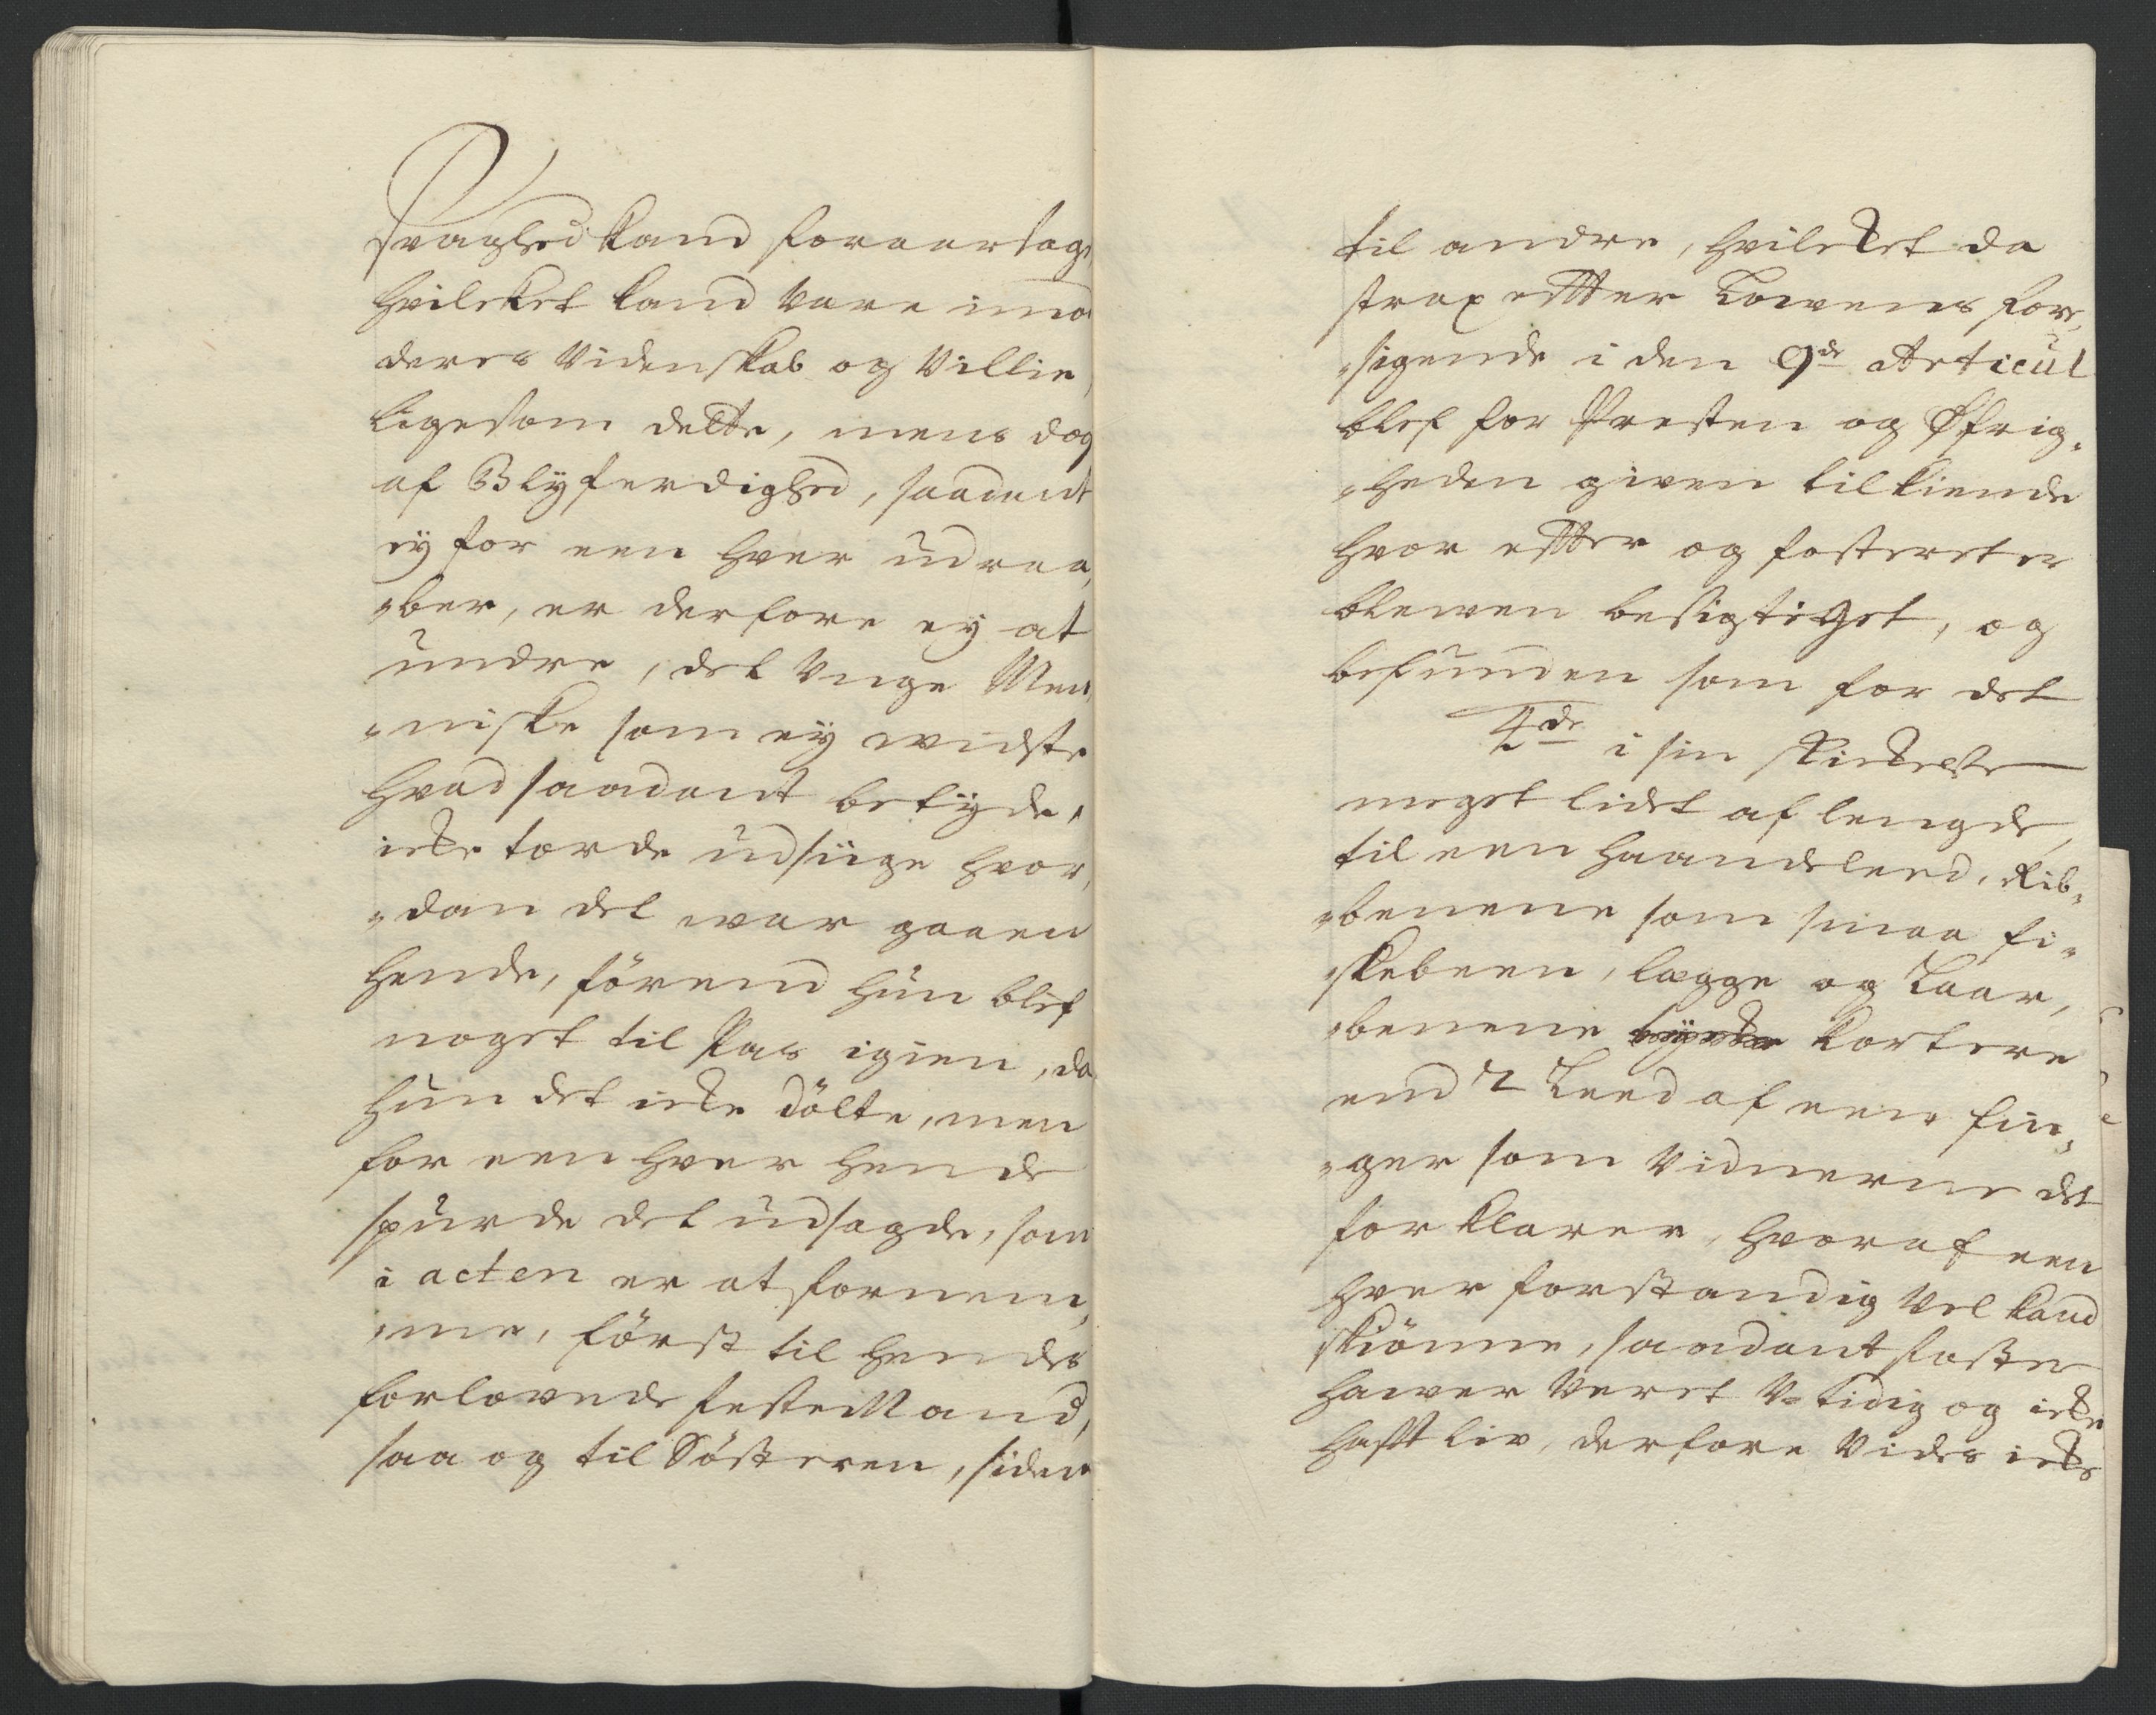 Svaghed kand foraarsage,
hvilcket kand være imod
deres Videnskab og Villie,
ligesom dette, mens dog
af Blyferdighed, saadant
ey for een hver udraa,,
,,ber, er derfore ey at
undre, det Unge Men,,
,,niske som ey widste
hvad saadant betyde,
icke torde udsiige hvor,,
,,dan det war gaaen
hende, förend hun blef
noget til Pas igien, da
hun det icke dölte, men
for een hver hende
spurde det udsagde, som
i acten er at fornem,,
,,me, först til hendes
forlovede festeMand,
saa og til Söstteren, siden
til andre, hvilcket da
strax effter Lowens for,,
,,sigende i den 9de Articul
blef for Presten og Øfrig,,
,,heden given tilkiende
hvor effter og fosteret er
blewen besigtiget, og
befunden som for det
4de i sin skickelse
meget lidet af lengde,
til een haandsleed, Rib,,
,,benene som smaa fi,,
,,skebeen, lægge og Laar,,
,,benene kortere
end 2 Leed af een fin,,
,,ger som Vidnerne det
forklarer, hvoraf een
hver forstandig vel kand
skiönne, saadant foster
hawer veret U-tidig og icke
hafft liv, derfore vides icke